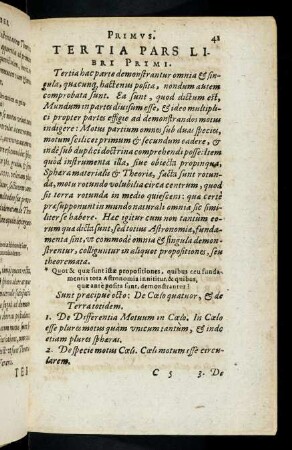 PRIMVS. 41
TERTIA PARS LI-
BRI PRIMI.
Tertia hac parte demonstrantur omnia & sin-
gula, quacunq, hactenus posita, nondum autem
comprobata sunt. Ea sunt, quod dictum est,
Mundum in partes diuisum esse, & ideo multipli-
ci propter partes effigie ad demonstrandos motus
indigere: Motus partium omnes sub duas species,
motum scilicet primum & secundum cadere, &
inde sub duplici doctrina comprehendi posse: Item
quod instrumenta illa, siue obiecta propinqua,
Sphæra materialis & Theoriæ, facta sunt rotunda,
motu rotundo volubilia circa centrum, quod
sit terra rotunda in medio quiescens: qua certè
præsupponunt in mundo naturali omnia sic simi-
liter se habere. Hæc igitur cum non tantùm eorum
quæ dicta sunt, sed totius Astronomiæ, funda-
menta sint, vt commodè omnia & singula demon-
strentur, colliguntur in aliquot propositiones, seu
theoremata.
* Quot & quæ sunt istæ propositiones, quibus ceu funda-
mentis tota Astronomia innititur, & quibus,
quæ antè posita sunt, demonstrantur?
Sunt præcipuè octo: De Cœlo quatuor, & de
Terra totidem.
1. De Differentia Motuum in Cœlo. In Cœlo
esse plures motus quàm vnicum tantùm, & inde
etiam plures sphæras.
2. De specie motus Cœli. Cœli motum esse circu-
larem.
C 5 3. De